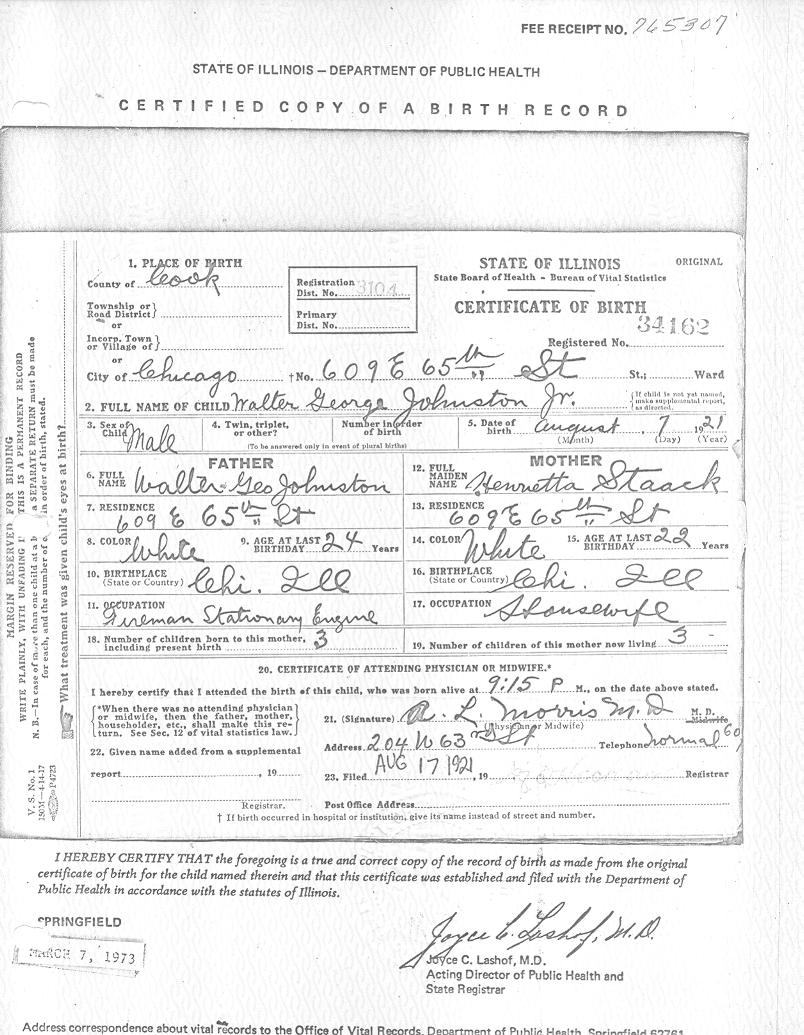 FEE RECEIPT NO. 765307
STATE OF ILLINOIS – DEPARTMENT OF PUBLIC HEALTH
CERTIFIED COPY OF A BIRTH RECORD
MARGIN RESERVED FOR BINDING
WRITE PLAINLY, WITH UNFADING THIS IS A PERMANENT RECORD
N. B.—In case of more than one child at a b a SEPARATE RETURN must be made
for each, and the number of in order of birth, stated.
What treatment was given child's eyes at birth?
V. S. No. 1
150M—4-14-17
P4723
1. PLACE OF BIRTH
County of Cook
Township or
Road District
or
Incorp. Town
or Village of
or
City of Chicago †No. 609 E 65th St St.; Ward
Registration
Dist. No. 3104
Primary
Dist. No.
STATE OF ILLINOIS ORIGINAL
State Board of Health – Bureau of Vital Statistics
CERTIFICATE OF BIRTH
34162
Registered No.
2. FULL NAME OF CHILD Walter George Johnston Jr.
If child is not yet named,
make supplemental report,
as directed.
3. Sex of
Child Male
4. Twin, triplet,
or other?
Number in order
of birth
(To be answered only in event of plural births)
5. Date of
birth August 7 1921
(Month) (Day) (Year)
FATHER
6. FULL
NAME Walter Geo Johnston
7. RESIDENCE
609 E 65th St
8. COLOR White 9. AGE AT LAST
BIRTHDAY 24 Years
10. BIRTHPLACE
(State or Country) Chi. Ill
11. OCCUPATION
Fireman Stationary Engine
MOTHER
12. FULL
MAIDEN
NAME Henrietta Staack
13. RESIDENCE
609 E 65th St
14. COLOR White 15. AGE AT LAST
BIRTHDAY 22 Years
16. BIRTHPLACE
(State or Country) Chi. Ill
17. OCCUPATION Housewife
18. Number of children born to this mother,
including present birth 3
19. Number of children of this mother now living 3
20. CERTIFICATE OF ATTENDING PHYSICIAN OR MIDWIFE.*
I hereby certify that I attended the birth of this child, who was born alive at 9:15 P M., on the date above stated.
*When there was no attending physician
or midwife, then the father, mother,
householder, etc., shall make this re-
turn. See Sec. 12 of vital statistics law.
21. (Signature) R. L. Morris M D M. D.
Midwife
(Physician or Midwife)
Address 204 W 63rd St Telephone Normal 60
22. Given name added from a supplemental
report , 19
Registrar.
23. Filed AUG 17 1921 , 19 Registrar
Post Office Address
† If birth occurred in hospital or institution, give its name instead of street and number.
I HEREBY CERTIFY THAT the foregoing is a true and correct copy of the record of birth as made from the original
certificate of birth for the child named therein and that this certificate was established and filed with the Department of
Public Health in accordance with the statutes of Illinois.
SPRINGFIELD
MARCH 7, 1973
Joyce C. Lashof, M.D.
Joyce C. Lashof, M.D.
Acting Director of Public Health and
State Registrar
Address correspondence about vital records to the Office of Vital Records, Department of Public Health, Springfield 62761